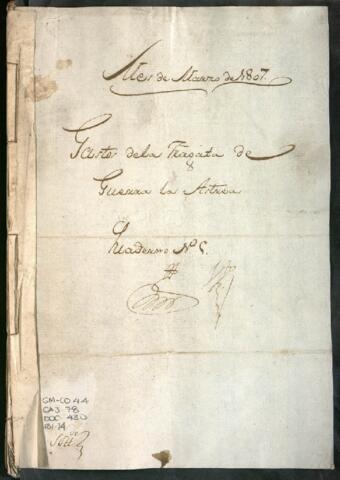 Mes de Marzo de 1807.
Gastos de la Fragata de
Guerra la Astrea
Quaderno Nº 5.
GM-CO 44
CAJ. 78
DOC 430